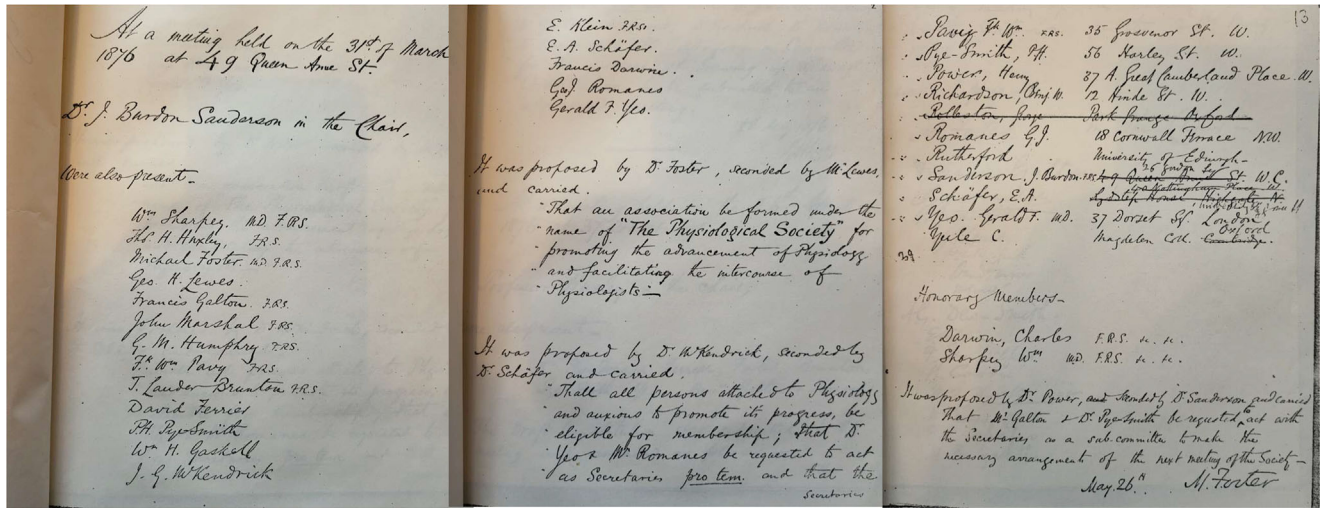 At a meeting held on the 31st of March
1876 at 49 Queen Anne St.
Dr. J. Burdon Sanderson in the Chair,
Were also present—
Wm Sharpey M.D. F.R.S.
Ths. H. Huxley, F.R.S.
Michael Foster M.D. F.R.S.
Geo. H. Lewes.
Francis Galton F.R.S.
John Marshal F.R.S.
G. M. Humphry F.R.S.
Fk. Wm Pavy F.R.S.
T. Lauder Brunton F.R.S.
David Ferrier
P.H. Pye-Smith
Wm H. Gaskell
J. G. McKendrick
E. Klein F.R.S.
E. A. Schäfer.
Francis Darwin.
Geo J. Romanes
Gerald F. Yeo.
It was proposed by Dr Foster, seconded by Mr Lewes,
and carried.
"That an association be formed under the
" name of "The Physiological Society" for
" promoting the advancement of Physiology
" and facilitating the intercourse of
" Physiologists—
It was proposed by Dr. McKendrick, seconded by
Dr. Schäfer and carried.
"Thall all persons attached to Physiology
" and anxious to promote its progress, be
" eligible for membership; that Dr.
" Yeo & Mr. Romanes be requested to act
" as Secretaries pro tem. and that the
Secretaries
13
Pavy Fk Wm F.R.S. 35 Grosvenor St. W.
Pye-Smith, P.H. 56 Harley St. W.
Power, Henry 37 A. Great Cumberland Place W.
Richardson, Benj W. 12 Hinde St. W.
Rolleston, George Park Grange Oxford
Romanes G.J. 18 Cornwall Terrace N.W.
Rutherford University of Edinbrgh—
Sanderson J. Burdon F.R.S. 49 Queen Anne St W.C.
26 Gordon Sq
Schäfer, E.A.
Yeo. Gerald F. M.D. 37 Dorset Sq. London
Yule C. Magdelen Coll. Cambridge.
Oxford
39
Honorary Members—
Darwin, Charles F.R.S. &c. &c.
Sharpey Wm M.D. F.R.S. &c. &c.
It was proposed by Dr Power, and seconded by Dr Sanderson and carried
That Mr Galton & Dr. Pye-Smith be requested to act with
the Secretaries as a sub-committee to make the
necessary arrangements of the next meeting of the Society—
May. 26th. M. Foster